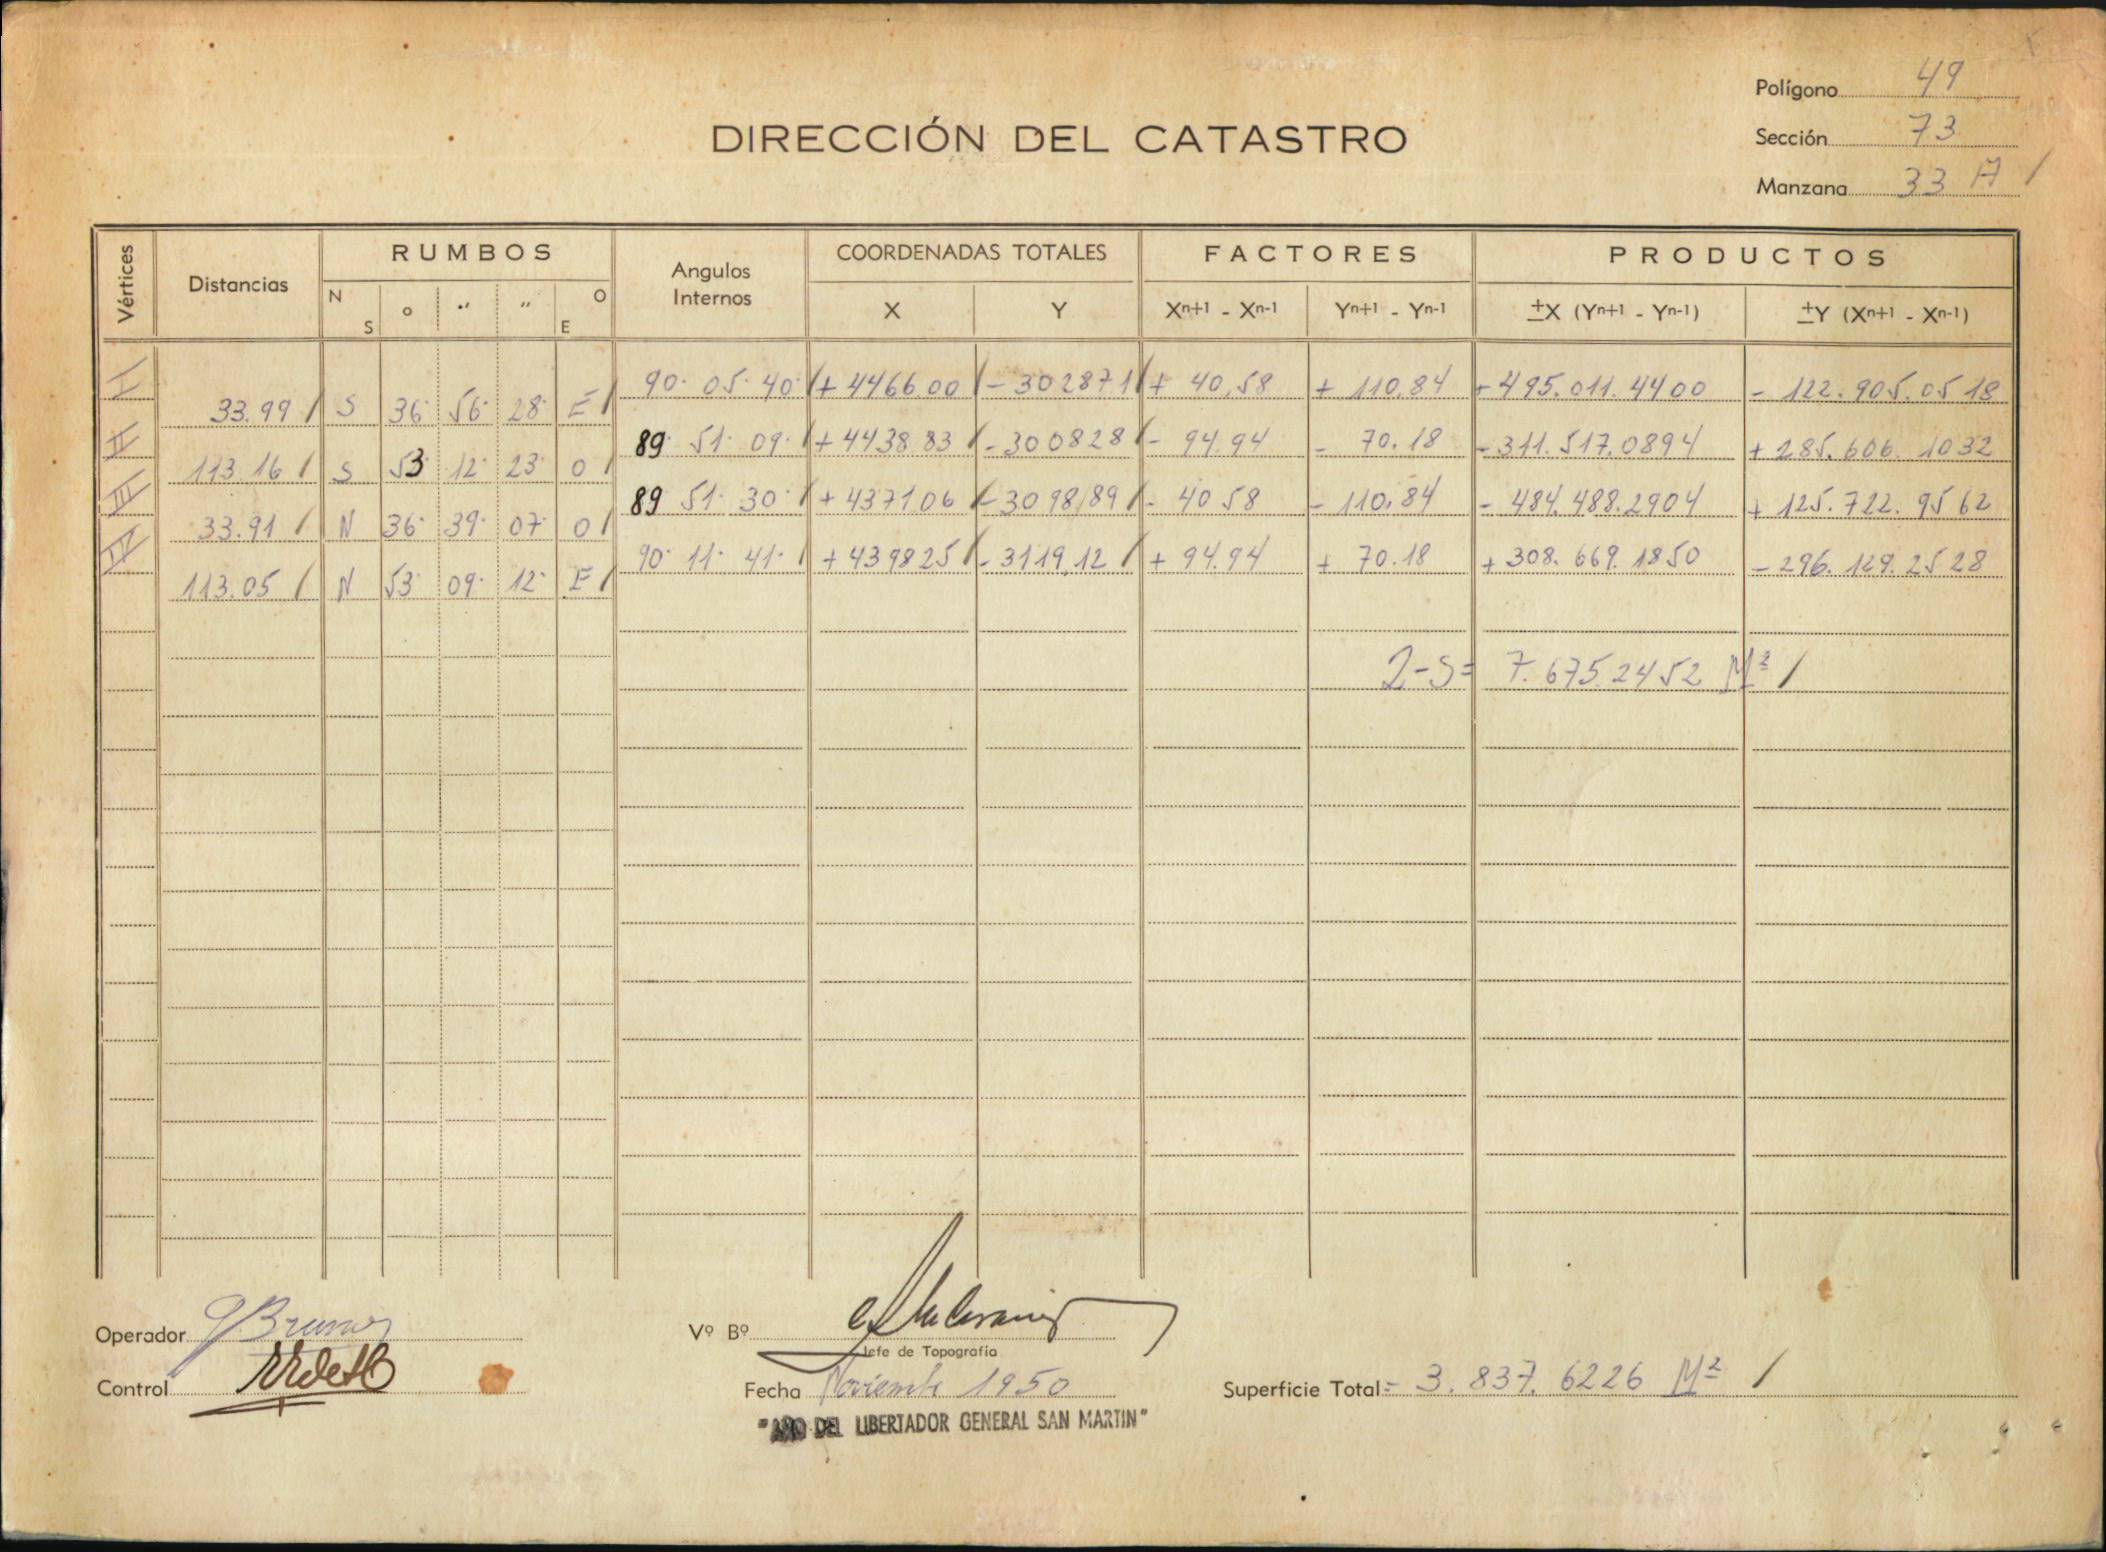 Polígono 49
DIRECCIÓN DEL CATASTRO
Sección 73
Manzana 33 A /
Vértices Distancias RUMBOS Angulos Internos COORDENADAS TOTALES FACTORES PRODUCTOS
N S o ., ,, O E X Y Xn+1 - Xn-1 Yn+1 - Yn-1 ±X (Yn+1 - Yn-1) ±Y (Xn+1 - Xn-1)
I 90· 05· 40· / + 4466.00 / - 302871 / + 40,58 + 110,84 + 495.011.4400 - 122.905.0518
33.99 / S 36· 56· 28· E /
II 89· 51· 09· / + 4438.83 / - 300828 / - 94.94 - 70.18 - 311.517.0894 + 285.606.1032
113.16 / S 53 12· 23· O /
III 89 51· 30· / + 437106 / - 3098,89 / - 40 58 - 110.84 - 484.488.2904 + 125.722.9562
33.91 / N 36· 39· 07· O /
IV 90· 11· 41· / + 439825 / - 3119,12 / + 94.94 + 70.18 + 308.669.1850 - 296.129.2528
113.05 / N 53· 09· 12· E /
2-S= 7.675.2452 M² /
Operador
Vº Bº
Jefe de Topografía
Control
Fecha Noviembre 1950
Superficie Total = 3.837.6226 M² /
"AÑO DEL LIBERTADOR GENERAL SAN MARTIN"